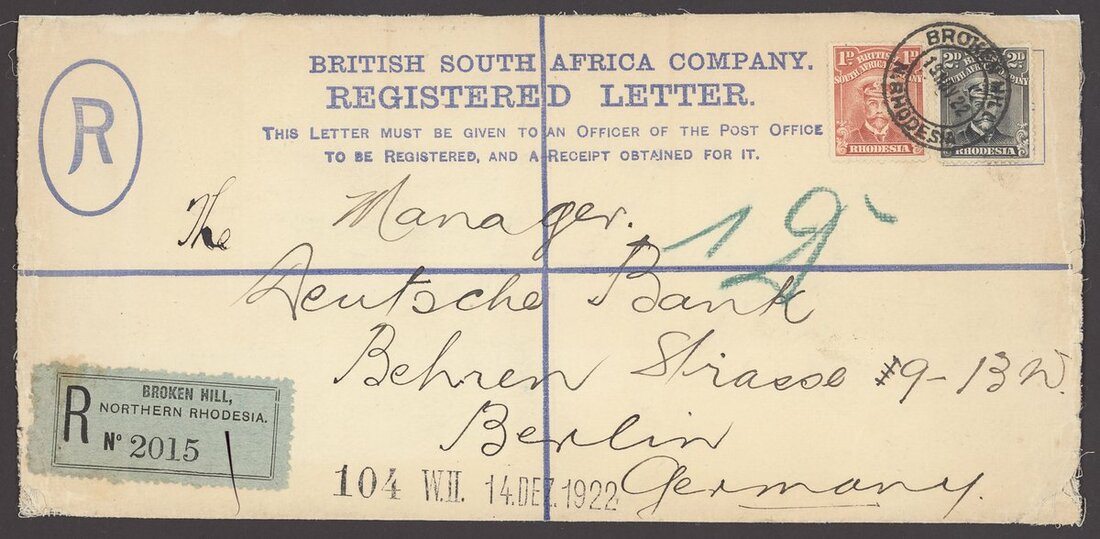 R
BRITISH SOUTH AFRICA COMPANY.
REGISTERED LETTER.
THIS LETTER MUST BE GIVEN TO AN OFFICER OF THE POST OFFICE
TO BE REGISTERED, AND A RECEIPT OBTAINED FOR IT.
1D BRITISH 1D
SOUTH AFRICA COMPANY
RHODESIA
2D 2D
RHODESIA
BROKEN HILL
N. RHODESIA
The Manager.
Deutsche Bank
Behren Strasse #9-13 W.
Berlin
Germany.
R
BROKEN HILL,
NORTHERN RHODESIA.
Nº 2015
104 W.II. 14.DEZ.1922